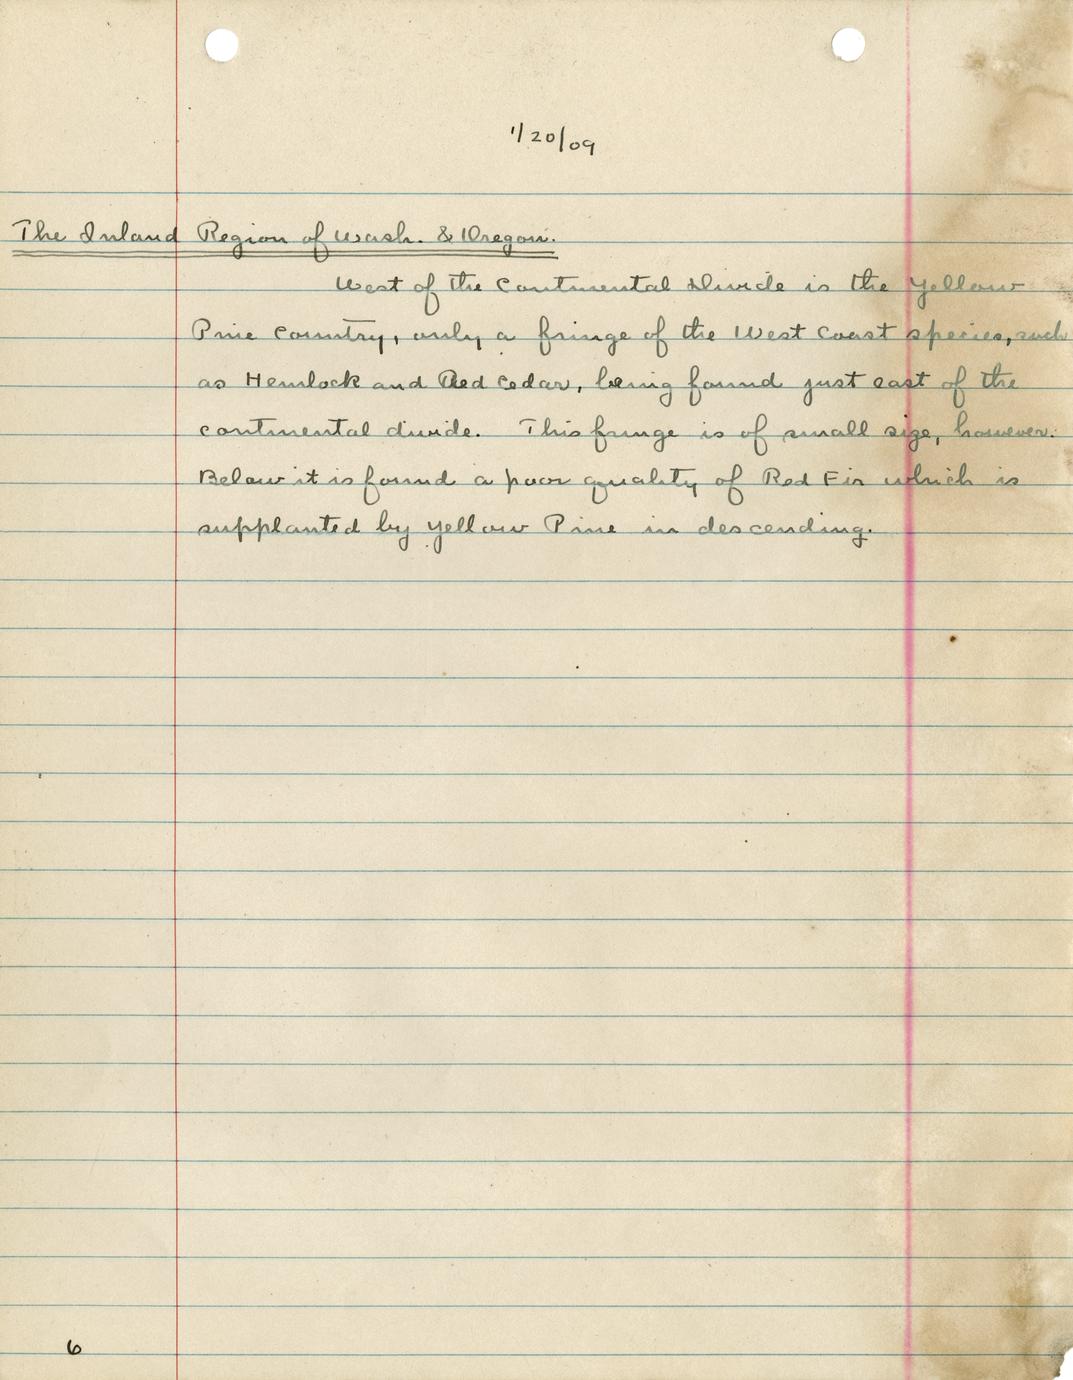 1/20/09
The Inland Region of Wash. & Oregon.
West of the Continental Divide is the Yellow
Pine country, only a fringe of the West Coast species, such
as Hemlock and Red Cedar, being found just east of the
continental divide. This fringe is of small size, however.
Below it is found a poor quality of Red Fir which is
supplanted by Yellow Pine in descending.
6